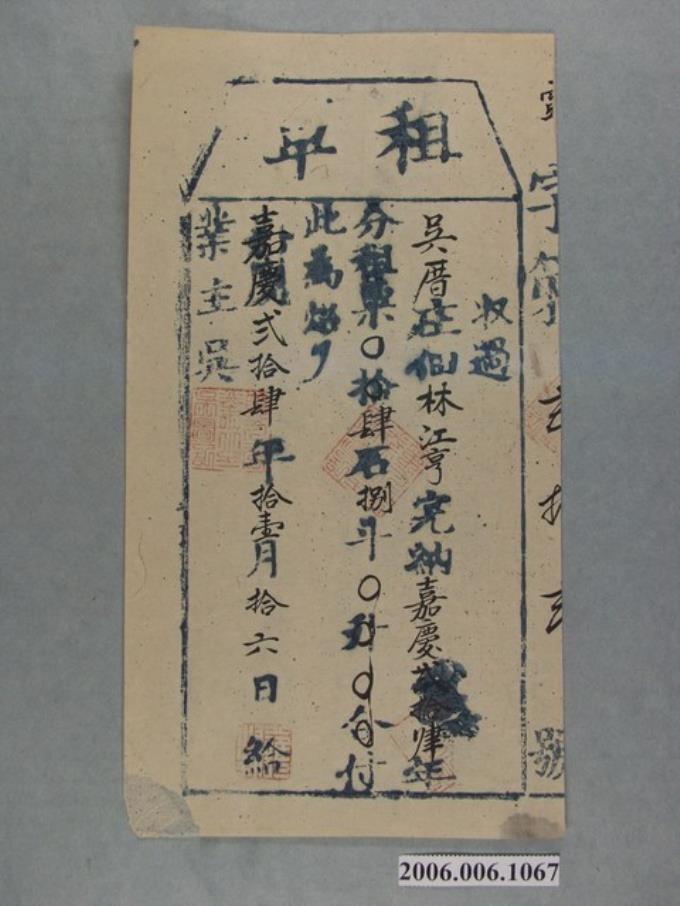 租年
收過
吳厝庄佃林江亨完納嘉慶弍拾肆年
分租粟〇拾肆石捌斗〇升〇合付
此為炤
嘉慶弍拾肆年拾壹月拾六日給
業主吳
字第
號
2006.006.1067